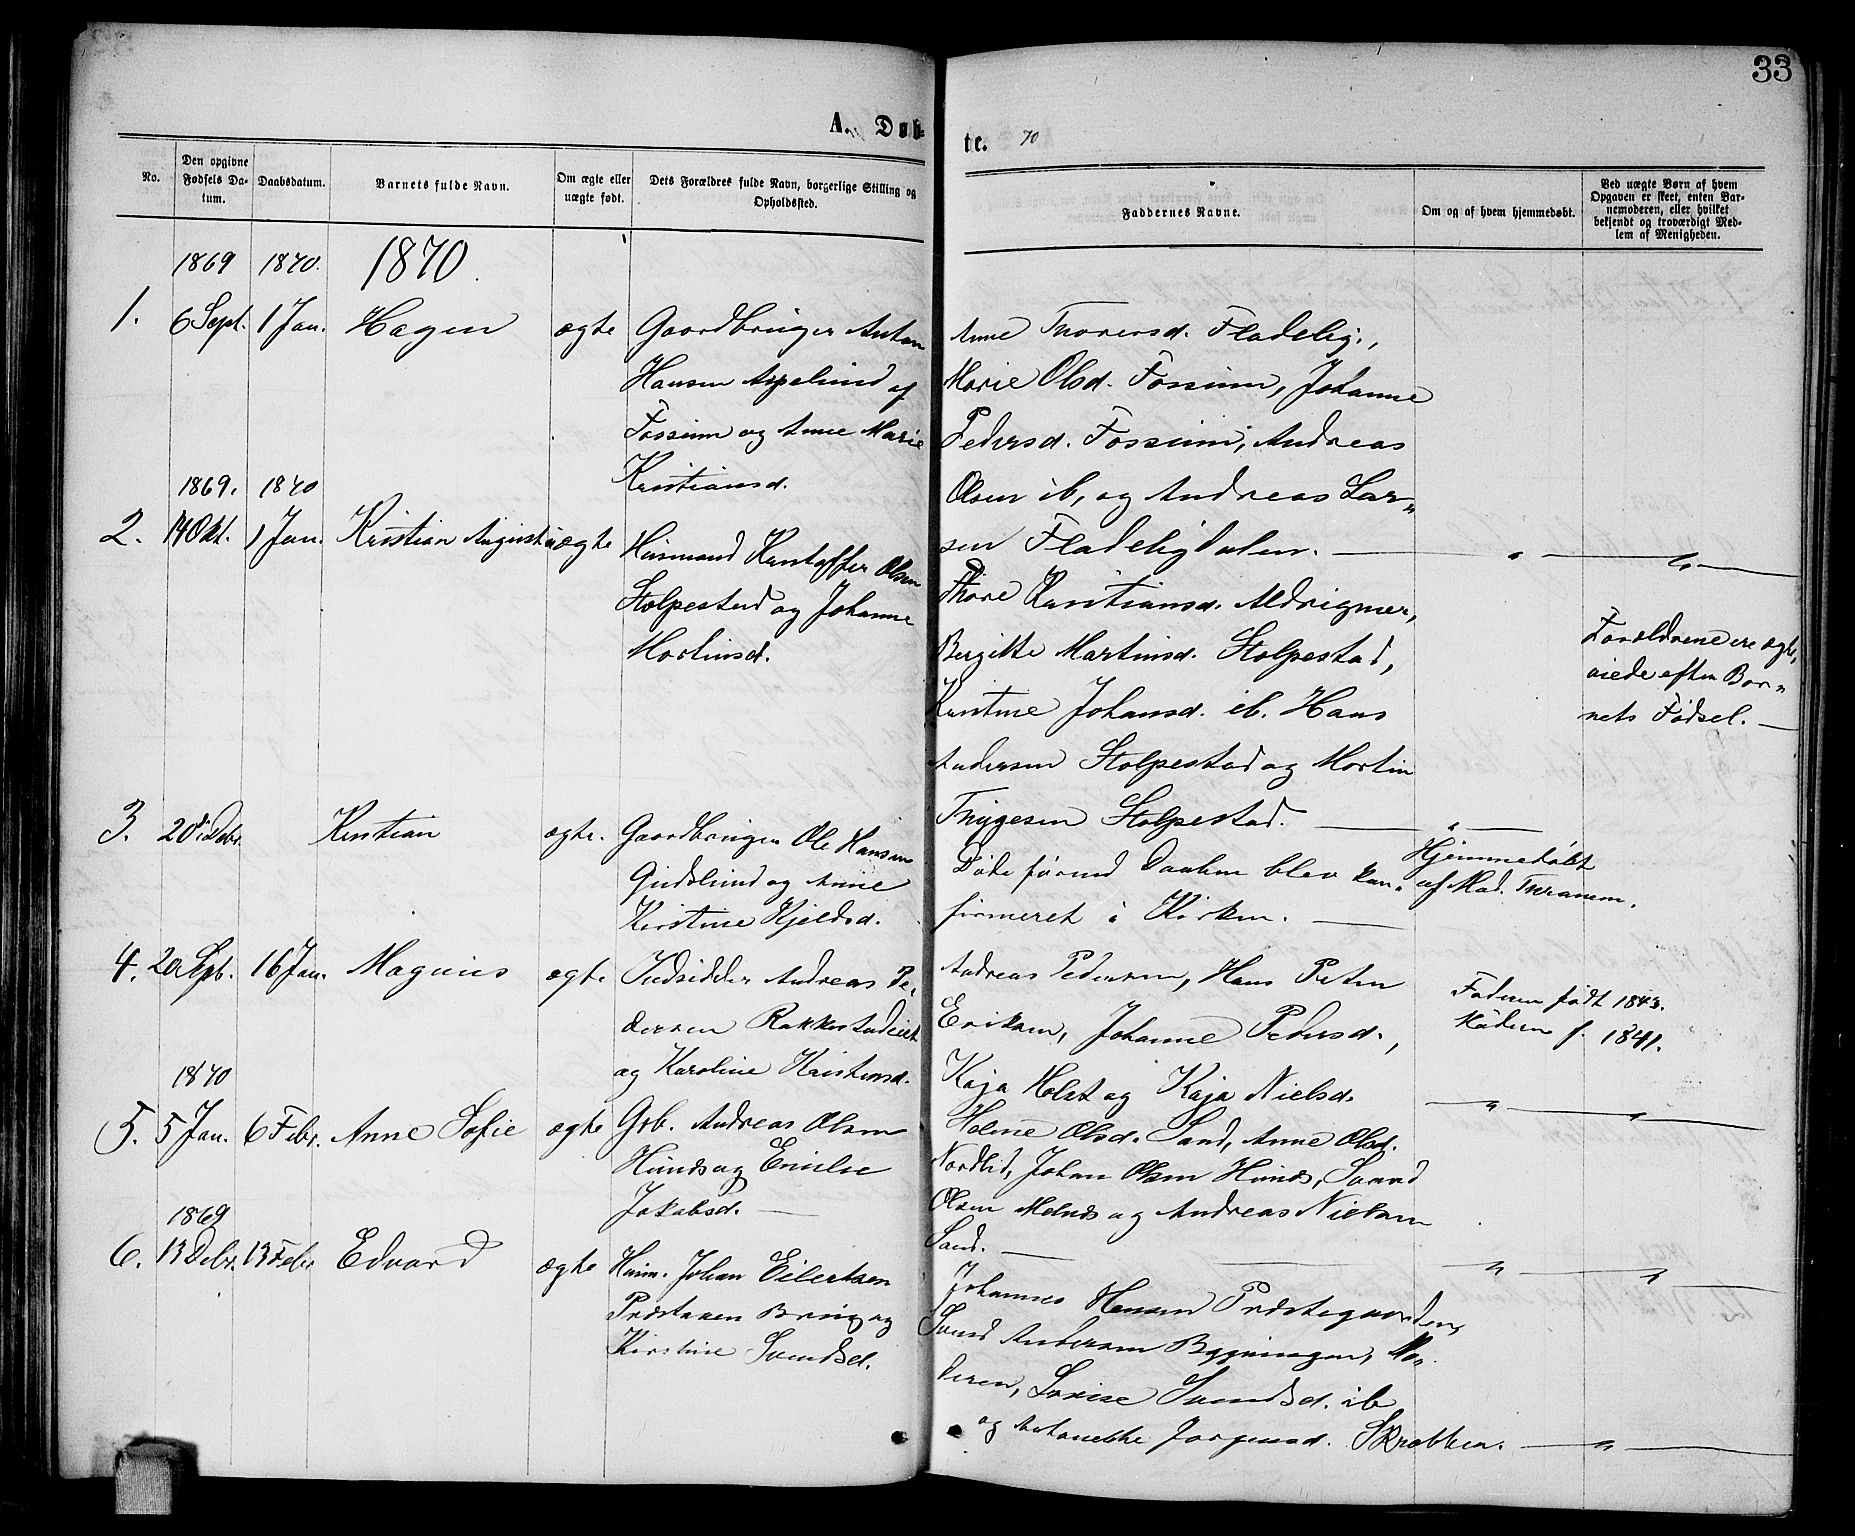 33
A. Døb-
te. 70
No.
Den opgivne Fødsels Da-tum.
Daabsdatum.
Barnets fulde Navn.
Om ægte eller uægte født.
Dets Forældres fulde Navn, borgerlige Stilling og Opholdssted.
Faddernes Navne.
Om og af hvem hjemmedøbt.
Ved uægte Børn af hvem Opgaven er skeet, enten Bar-nemoderen, eller hvilket bekjendt og troværdigt Med-lem af Menigheden.
1869 1870. 1870.
1. 6 Sept. 1 Jan. Hagen ægte Gaardbruger Anton
Hansen Aspelund af
Fossum og Anne Marie
Kristiansd.
Anne Thorersd. Fladelig.,
Marie Olsd. Fossum, Johanne
Pedersd. Fossum, Andreas
Olsen ib, og Andreas Lar-
sen Fladeligdalen. — " — " —
1869. 1870
2. 14 Okt. 1 Jan. Kristian August ægte Husmand Kristoffer Olsen
Stolpestad og Johanne
Martinsd.
Thore Kristiansd. Aldrigmer,
Bergitte Martinsd. Stolpestad,
Kristine Johansd. ib. Hans
Andersen Stolpestad og Martin
Trygesen Stolpestad. — " —
Forældrene ere ægte
viede efter Bar-
nets Fødsel. —
3. 20 Debr. Kristian ægte. Gaardbruger Ole Hansen
Gudslund og Anne
Kirstine Kjeldsd.
Døde førend Daaben blev kon-
firmeret i Kirken. —
Hjemmedøbt
af Mad. Thranem.
4. 20 Spt. 16 Jan. Magnus ægte Indsidder Andreas Pe-
dersen Rakkestadeiet
og Karoline Kristensd.
Andreas Pedersen, Hans Peter
Eriksen, Johanne Pedersd.,
Kaja Holst og Kaja Nielsd.
Faderen født 1843.
Moderen f. 1841.
— " — " —
1870
5. 5 Jan. 6 Febr. Anne Sofie ægte Grb. Andreas Olsen
Hunds og Emilie
Jakobsd. —
Helene Olsd. Sand, Anne Olsd.
Nordlid, Johan Olsen Hunds, Svend
Olsen Melnds og Andreas Nielsen
Sand. — — " — " —
1869
6. 13 Debr. 13 Febr Edvard ægte Husm. Johan Eilertsen
Præstsæteren Bring og
Kirstine Svendsd.
Johannes Hansen Præstegaarden,
Svend Andersen Bygningen, Mo-
deren, Lovise Svendsd. ib
og Antonette Jørgensd. Skrabben. — " —